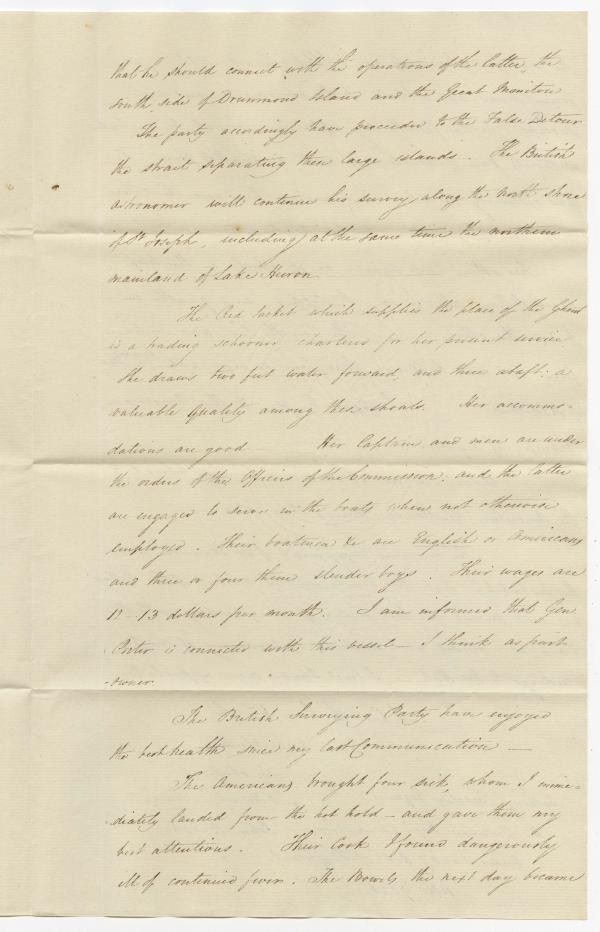 that he should connect with the operations of the latter, the
south side of Drummond Island and the Great Manitou
The party accordingly have proceeded to the False Detour
the strait separating these large islands. The British
astronomer will continue his survey along the north shore
of St Joseph, including at the same time the northern
mainland of Lake Huron
The Red Jacket which supplies the place of the Ghent
is a trading schooner chartered for her present service
She draws two feet water forward, and three abaft: a
valuable quality among these shoals. Her accommo-
dations are good Her Captain and men are under
the orders of the Officers of the Commission; and the latter
are engaged to serve in the boats when not otherwise
employed. Their boatmen &c are English or Americans
and three or four them slender boys. Their wages are
12-13 dollars per month. I am informed that Gen
Porter is connected with this vessel — I think as part
-owner.
The British Surveying Party have enjoyed
the best health since my last Communication —
The Americans brought four sick, whom I imme-
diately landed from the hot hold — and gave them my
best attentions. Their Cook I found dangerously
ill of continued fever. The Bowels the next day became